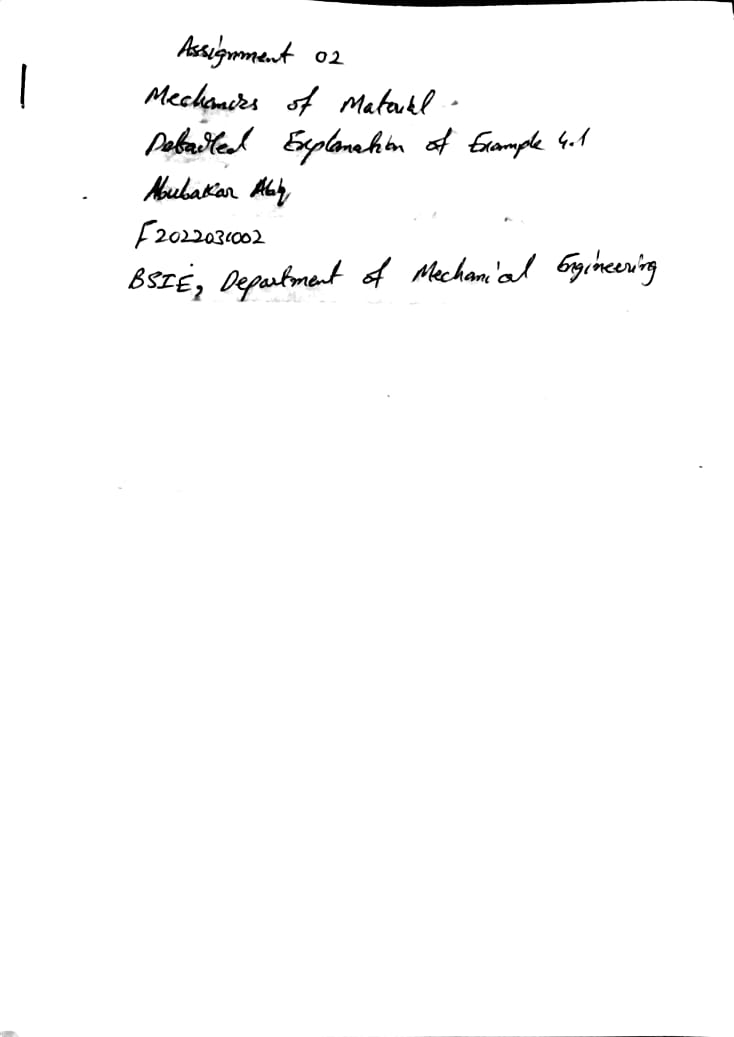 Assignment 02
Mechanics of Material.
Detailed Explanation of Example 4.1
Abubakar
F2022031002
BSIE, Department of Mechanical Engineering